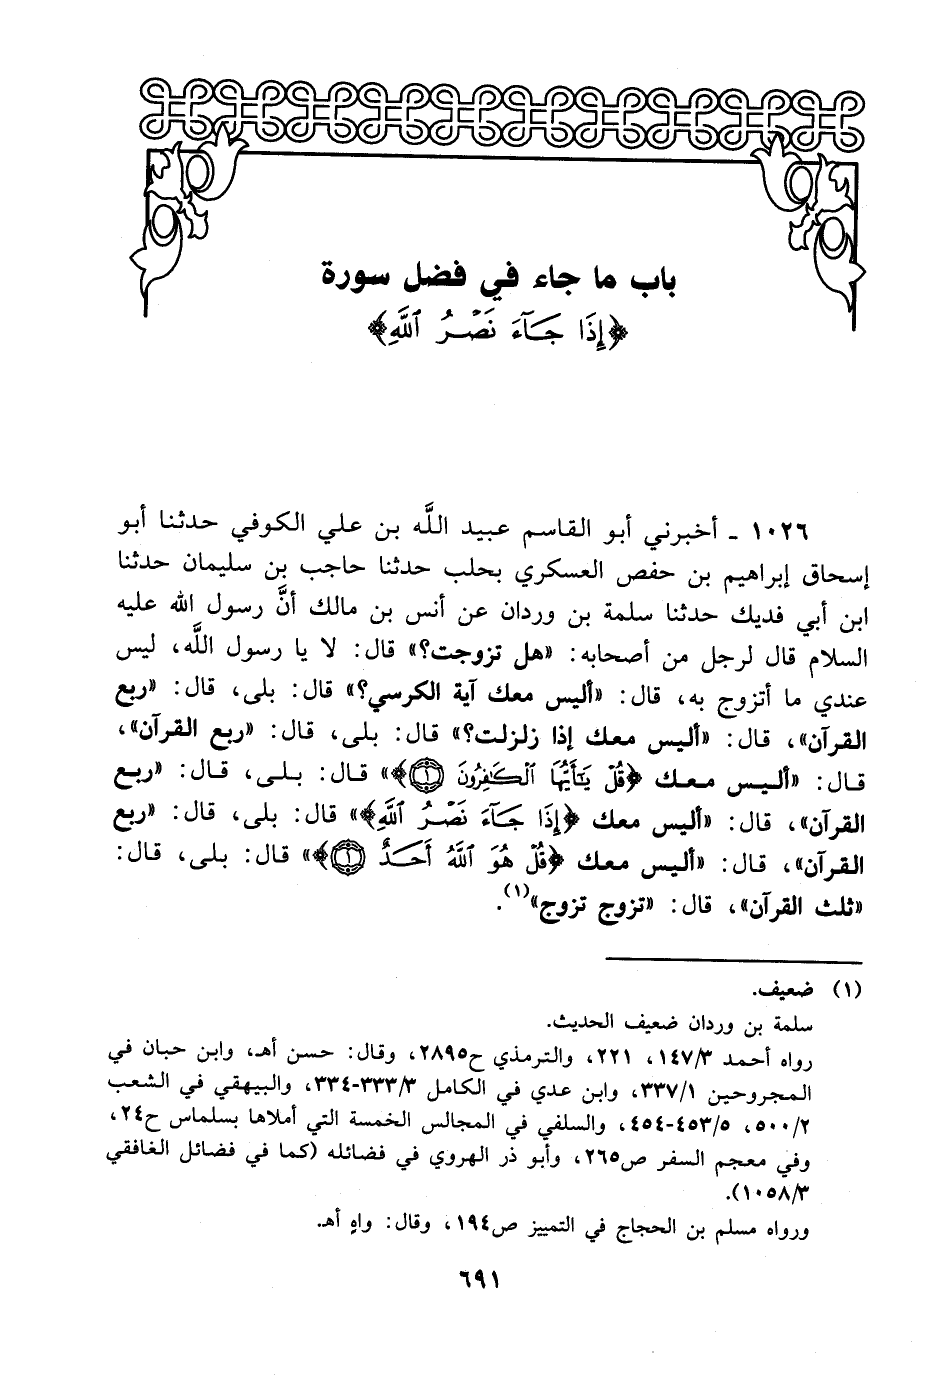 باب ما جاء في فضل سورة
﴿إِذَا جَآءَ نَصْرُ ٱللَّهِ﴾
١٠٢٦ ـ أخبرني أبو القاسم عبيد اللَّه بن علي الكوفي حدثنا أبو
إسحاق إبراهيم بن حفص العسكري بحلب حدثنا حاجب بن سليمان حدثنا
ابن أبي فديك حدثنا سلمة بن وردان عن أنس بن مالك أنَّ رسول الله عليه
السلام قال لرجل من أصحابه: «هل تزوجت؟» قال: لا يا رسول اللَّه، ليس
عندي ما أتزوج به، قال: «أليس معك آية الكرسي؟» قال: بلى، قال: «ربع
القرآن»، قال: «أليس معك إذا زلزلت؟» قال: بلى، قال: «ربع القرآن»،
قال: «أليس معك ﴿قُلْ يَٰٓأَيُّهَا ٱلْكَٰفِرُونَ ١﴾» قال: بلى، قال: «ربع
القرآن»، قال: «أليس معك ﴿إِذَا جَآءَ نَصْرُ ٱللَّهِ﴾» قال: بلى، قال: «ربع
القرآن»، قال: «أليس معك ﴿قُلْ هُوَ ٱللَّهُ أَحَدٌ ١﴾» قال: بلى، قال:
«ثلث القرآن»، قال: «تزوج تزوج»(١).
(١) ضعيف.
سلمة بن وردان ضعيف الحديث.
رواه أحمد ١٤٧/٣، ٢٢١، والترمذي ح٢٨٩٥، وقال: حسن أهـ، وابن حبان في
المجروحين ٣٣٧/١، وابن عدي في الكامل ٣٣٣/٣-٣٣٤، والبيهقي في الشعب
٥٠٠/٢، ٤٥٣/٥-٤٥٤، والسلفي في المجالس الخمسة التي أملاها بسلماس ح٢٤،
وفي معجم السفر ص٢٦٥، وأبو ذر الهروي في فضائله (كما في فضائل الغافقي
١٠٥٨/٣).
ورواه مسلم بن الحجاج في التمييز ص١٩٤، وقال: واهٍ أهـ.
٦٩١